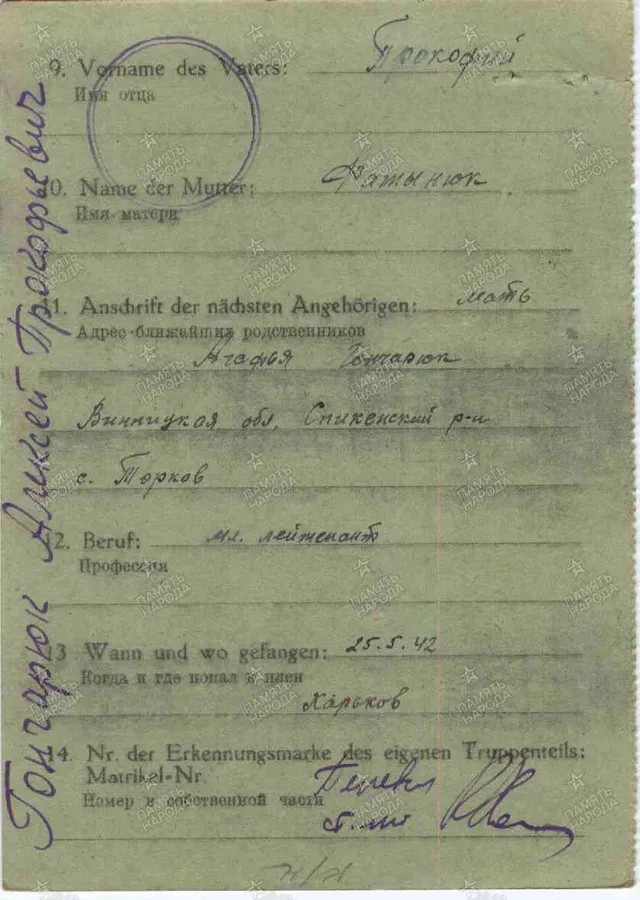 Гончарюк Алексей Прокофьевич
9. Vorname des Vaters: Прокофий
Имя отца
10. Name der Mutter: Фатынюк
Имя матери
11. Anschrift der nächsten Angehörigen: мать
Адрес ближайших родственников
Агафья Гончарюк
Винницкая обл, Спикенский р-н
с. Торков
12. Beruf: мл. лейтенант
Профессия
13 Wann und wo gefangen: 25.5.42
Когда и где попал в плен
Харьков
14. Nr. der Erkennungsmarke des eigenen Truppenteils:
Matrikel-Nr.
Номер и собственной части
ПАМЯТЬ НАРОДА